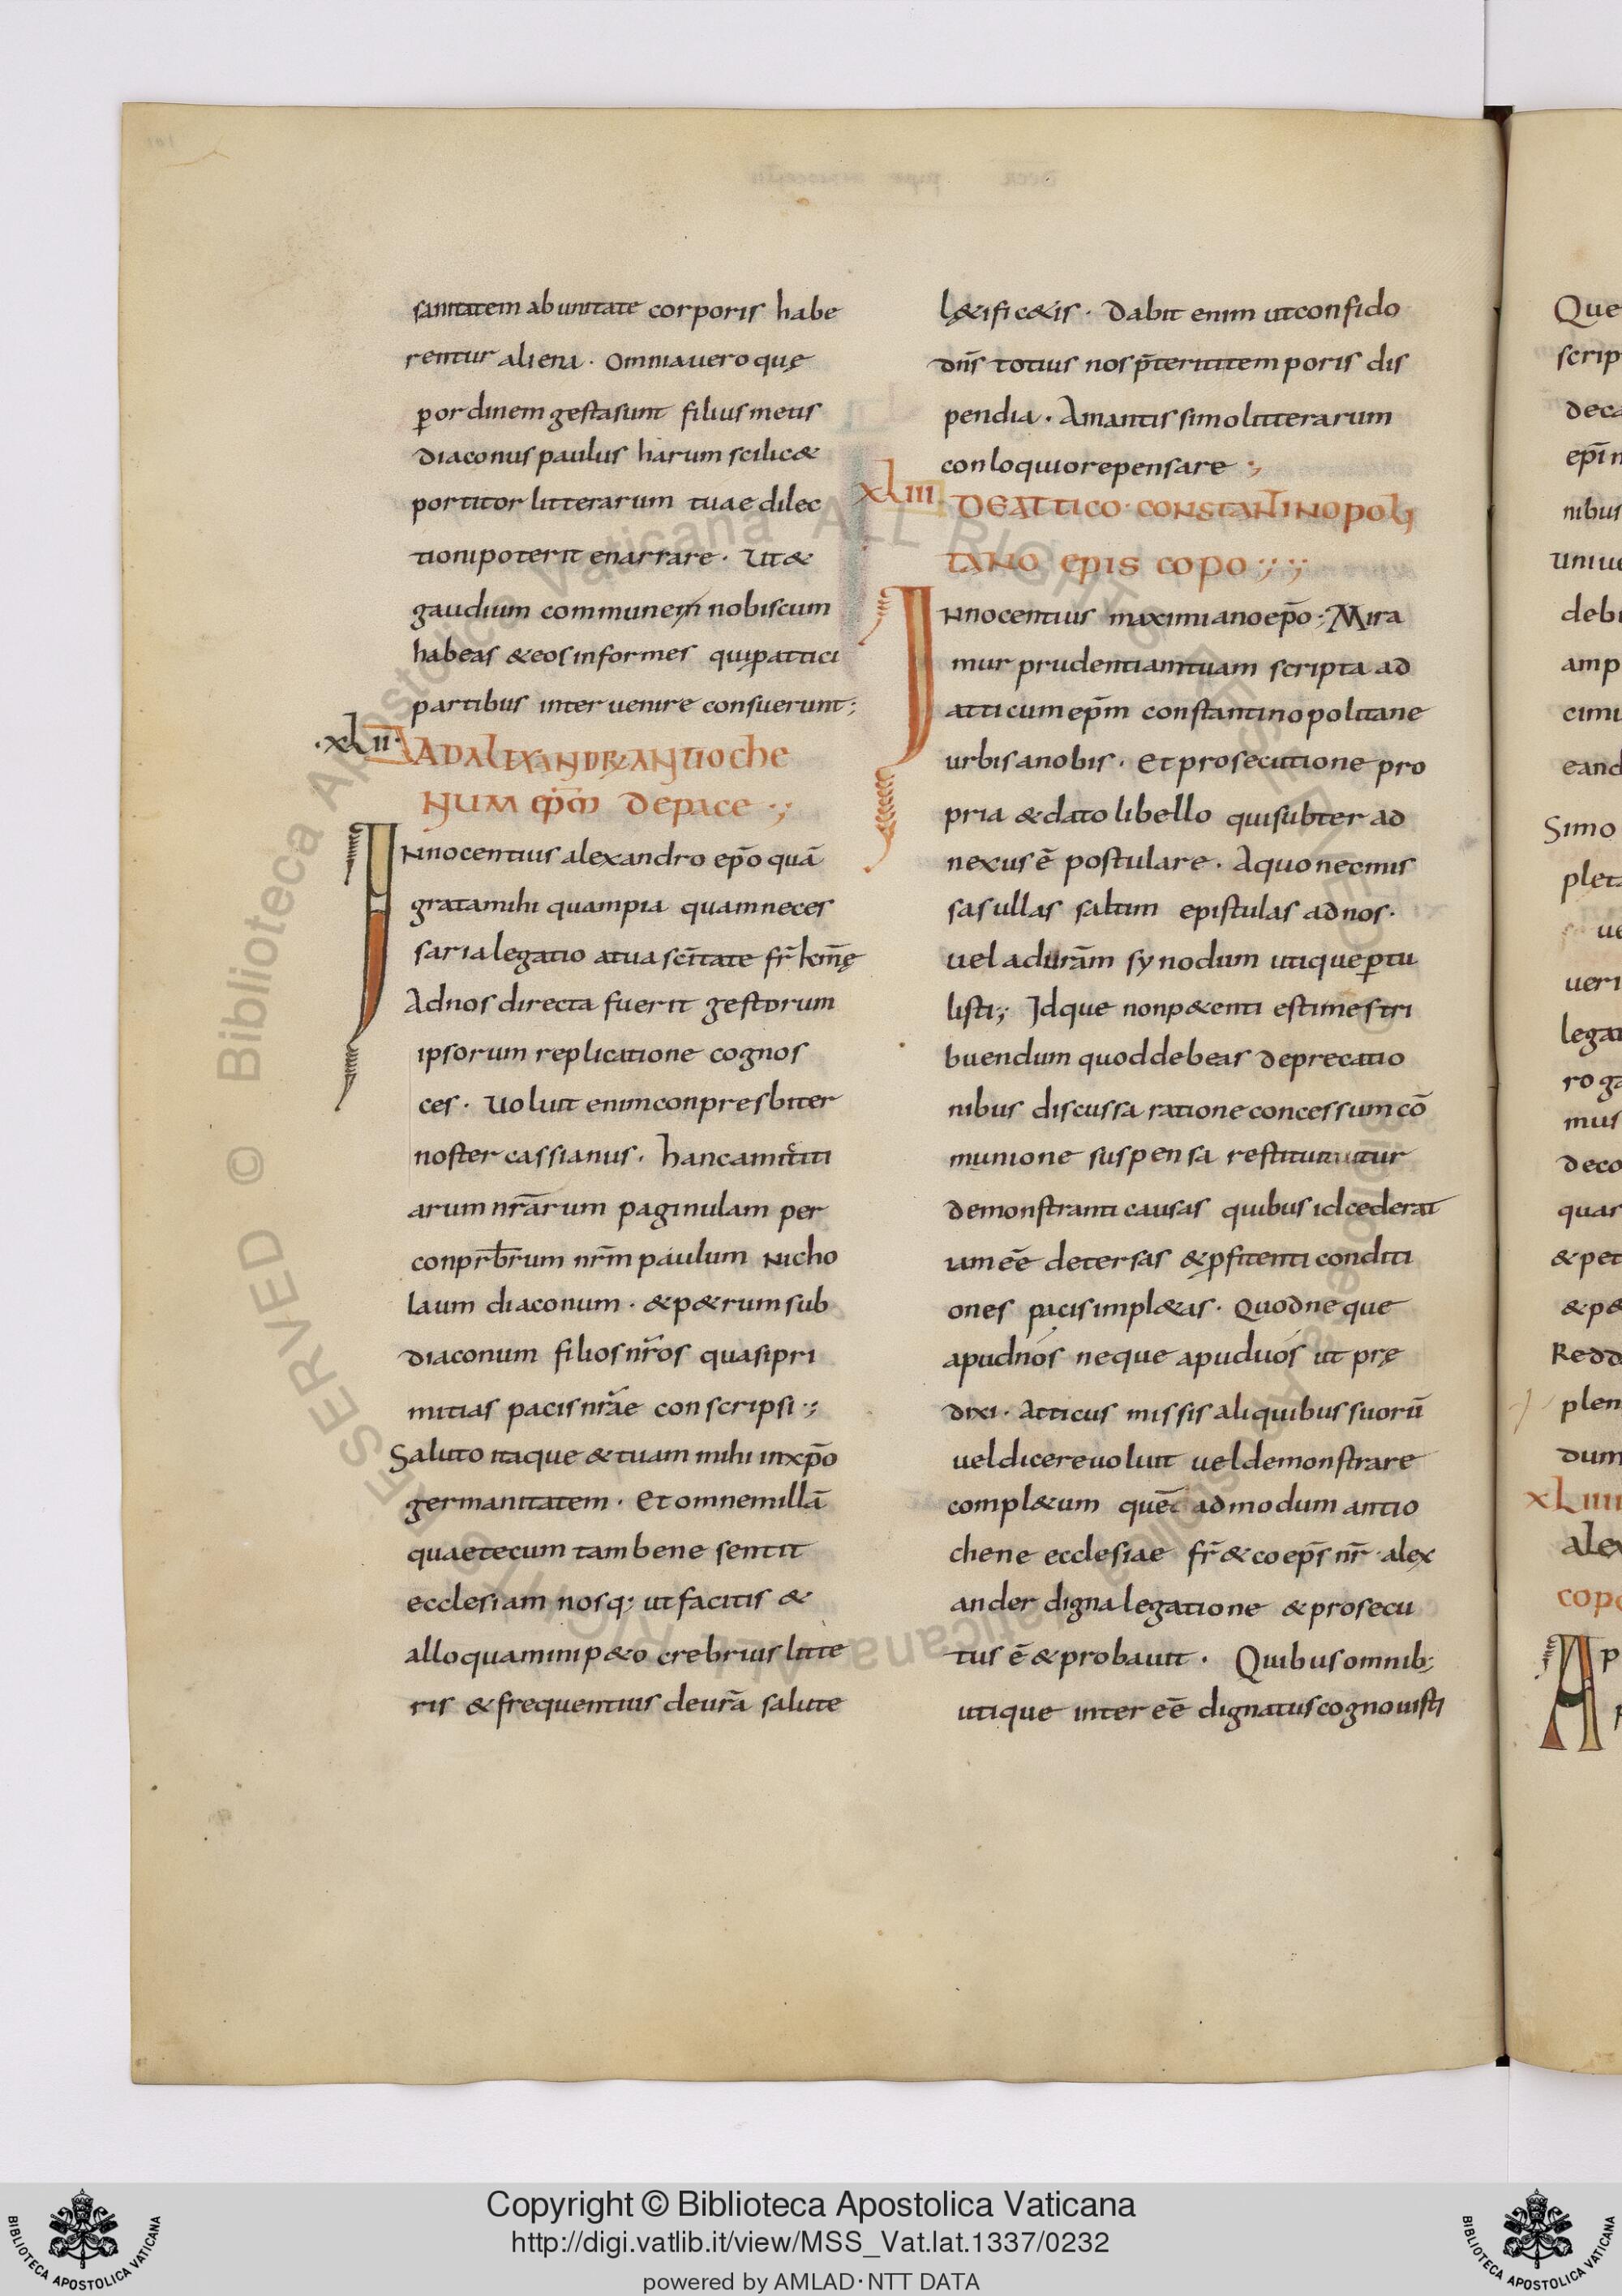 sanitatem ab unitate corporis habe
rentur aliena · Omnia uero quę
p̄ ordinem gesta sunt filius meus
diaconus paulus harum scilic&
portitor litterarum tuae dilec
tioni poterit enarrare · Ut &
gaudium communem nobiscum
habeas & eos informes qui p attici
partibus interuenire consuerunt ;
·XLII· AD ALEXANDR ANTIOCHE
NUM EPM DE PACE ·;
Innocentius alexandro ep̄o quā
grata mihi quam pia quam neces
saria legatio a tua sc̄itate fr̄ km̄ę
Ad nos directa fuerit gestorum
ipsorum replicatione cognos
ces · Uoluit enim conpresbiter
noster cassianus · hanc amiciti
arum nr̄arum paginulam per
conpr̄br̄um nr̄m paulum Nicho
laum diaconum · & p&rum sub
diaconum filios nr̄os quasi pri
mitias pacis nr̄ae conscripsi ·;
Saluto itaque & tuam mihi in xp̄o
germanitatem · Et omnem illā
quae tecum tam bene sentit
ecclesiam nosq; ut facitis &
alloquamini p&o crebrius litte
ris & frequentius de ur̄a salute
l&ific&is · Dabit enim ut confido
dn̄s totius nos p̄teriti temporis dis
pendia · Amantissimo litterarum
conloquio repensare ·;
XLIII DE ATTICO · CONSTANTINOPOLI
TANO EPISCOPO ·; ·;
Innocentius maximiano ep̄o ·; Mira
mur prudentiam tuam scripta ad
atticum ep̄m constantinopolitane
urbis a nobis · Et prosecutione pro
pria & dato libello qui subter ad
nexus ē postulare · A quo nec mis
sas ullas saltim epistulas ad nos ·
uel ad ur̄am synodum utique p̄tu
listi ·; Idque non p&enti estimes tri
buendum quod debeas deprecatio
nibus discussa ratione concessum cō
munione suspensa restituatur
demonstranti causas quibus id cederat
iam eē detersas & p̄fitenti conditi
ones pacis impl&as · Quod neque
apud nos neque apud uos ut prę
dixi · Atticus missis aliquibus suorū
uel dicere uoluit uel demonstrare
compl&um quē admodum antio
chene ecclesiae fr̄ & coep̄s nr̄ · alex
ander digna legatione & prosecu
tus ē & probauit · Quibus omnib;
utique intereē dignatus cognouisti
Que
scrip
deca
ep̄i n
nibus
uniue
debi
amp
cimu
eand
Simo
pleta
ue
ueri
legat
roga
mus
deco
quas
& pet
& p&
Redd
plen
dum
XLIIII
alex
copo
Ap
Copyright © Biblioteca Apostolica Vaticana
http://digi.vatlib.it/view/MSS_Vat.lat.1337/0232
powered by AMLAD·NTT DATA
BIBLIOTECA APOSTOLICA VATICANA
BIBLIOTECA APOSTOLICA VATICANA